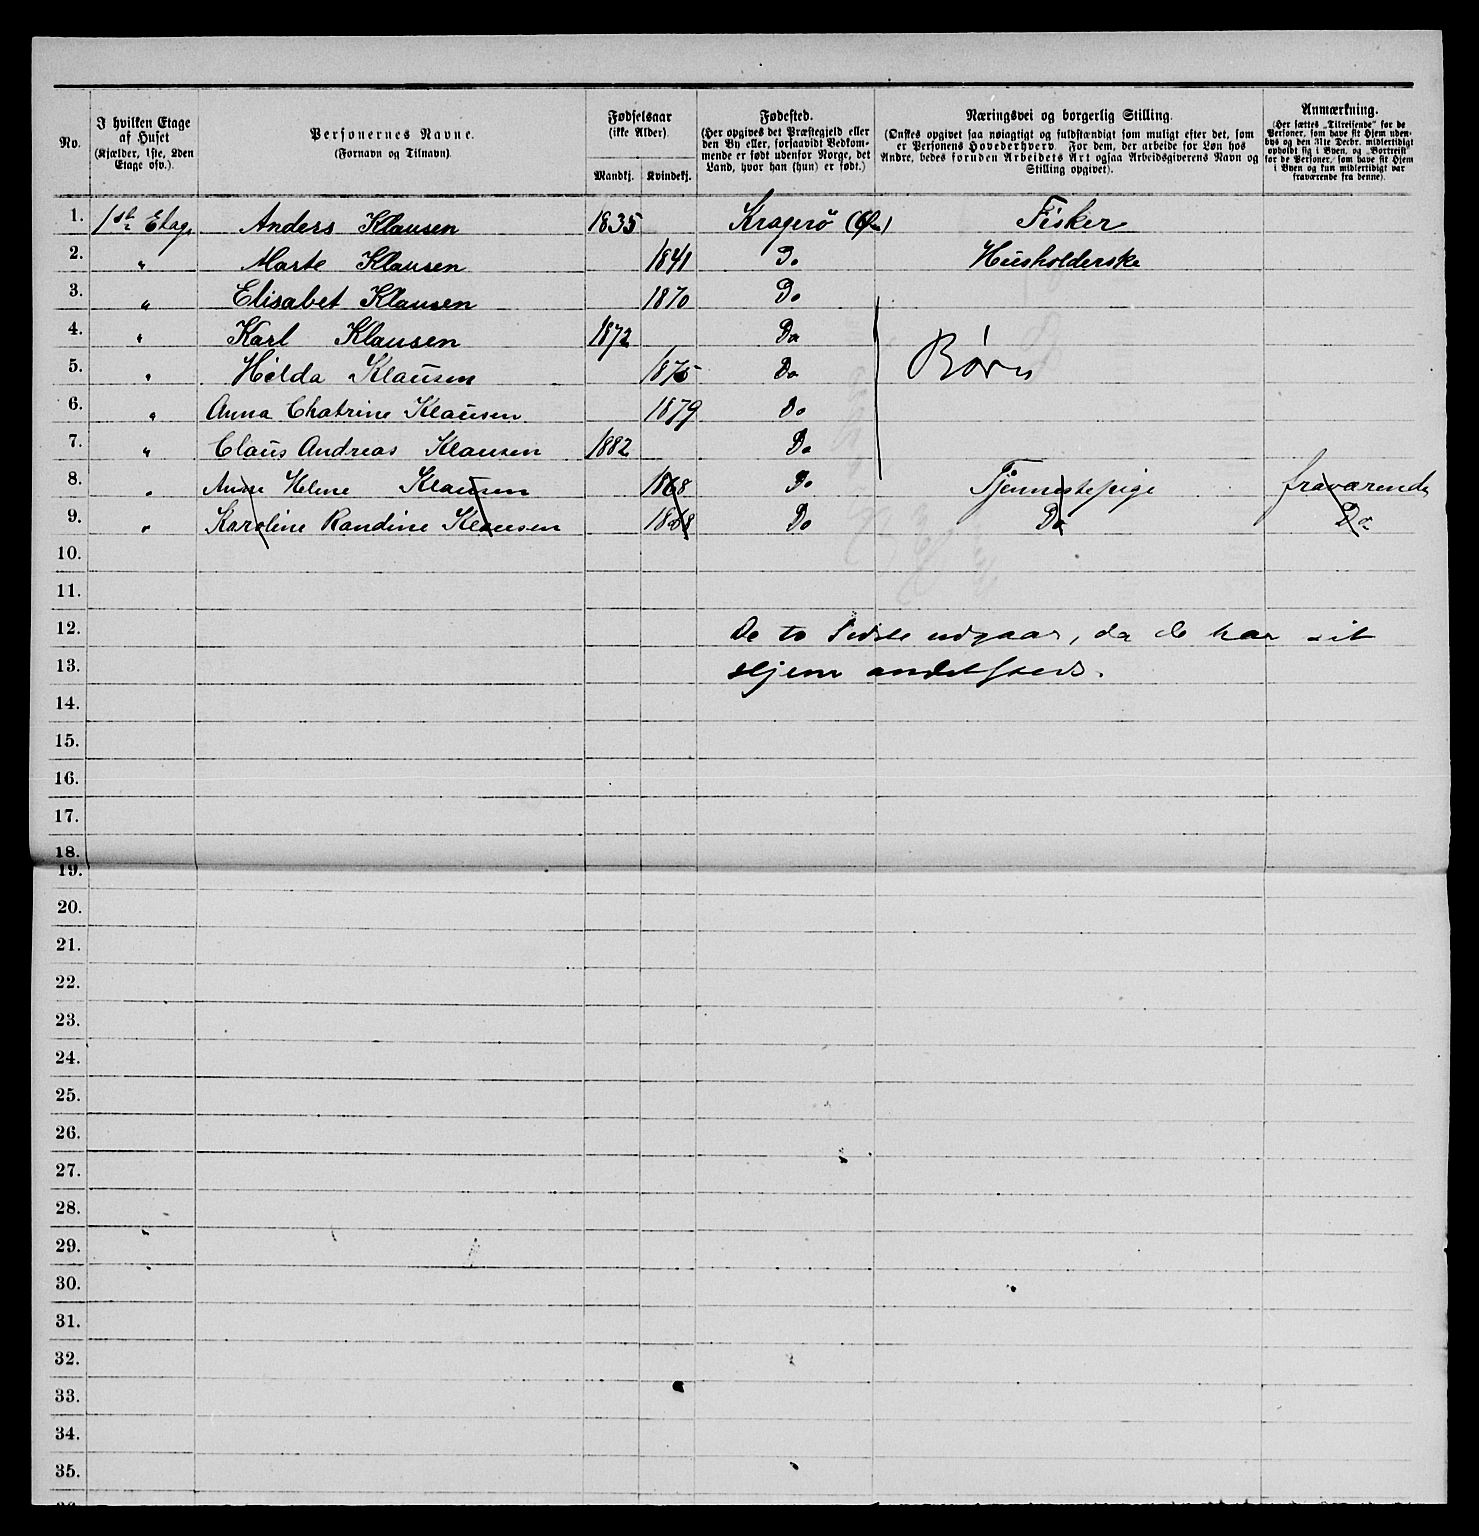 No.
I hvilken Etage af Huset
(Kjælder, 1ste, 2den Etage osv.).
Personernes Navne.
(Fornavn og Tilnavn).
Fødselsaar
(ikke Alder).
Mandkj. Kvindekj.
Fødested.
(Her opgives det Præstegjeld eller den By eller, forsaavidt Vedkommende er født udenfor Norge, det Land, hvor han (hun) er født.)
Næringsvei og borgerlig Stilling.
(Ønskes opgivet saa nøiagtigt og fuldstændigt som muligt efter det, som er Personens Hovederhverv. For dem, der arbeide for Løn hos Andre, bedes foruden Arbeidets Art ogsaa Arbeidsgiverens Navn og Stilling opgivet).
Anmærkning.
(Her sættes „Tilreisende" for de Personer, som have sit Hjem udenbys og den 31te Decbr. midlertidigt opholdt sig i Byen, og „Bortreist" for de Personer, som have sit Hjem i Byen og kun midlertidigt var fraværende fra denne).
1. 1ste Etage Anders Klausen 1835 Kragerö Fisker
2. " Marte Klausen 1841 Do Husholderske
3. " Elisabet Klausen 1870 Do
4. " Karl Klausen 1872 Do
Børn
5. " Hilda Klausen 1875 Do
6. " Anna Chatrine Klausen 1879 Do
7. " Claus Andreas Klausen 1882 Do
8. " Anne Helene Klausen 1868 Do Tjenestepige fraværende
9. " Karoline Randine Klausen 1868 Do Do Do
10.
11.
12. De to sidste udgaar, da de har sit
13. Hjem andetsteds.
14.
15.
16.
17.
18.
19.
20.
21.
22.
23.
24.
25.
26.
27.
28.
29.
30.
31.
32.
33.
34.
35.